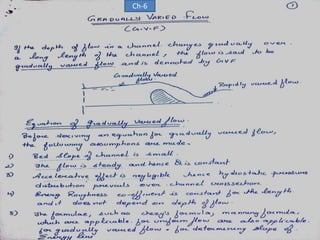 Ch-6
1
GRADUALLY VARIED FLOW
(G.V.F)
If the depth of flow in a channel changes gradually over
a long length of the channel, the flow is said to be
gradually varied flow and is denoted by GVF
Gradually Varied
flow
Rapidly varied flow
Equation of gradually varied flow.
Before deriving an equation for gradually varied flow,
the following assumptions are made.
1) Bed slope of channel is small
2) The flow is steady and hence Q is constant
3) Accelerative effect is negligible hence hydrostatic pressure
distribution prevails over channel crosssection.
4) Energy Roughness co-efficient is constant for the length
and it does not depend on depth of flow
5) The formulae, such as chezy's formula, manning formula,
which are applicable for uniform flow are also applicable
for gradually varied flow. for determining slope of
Energy line